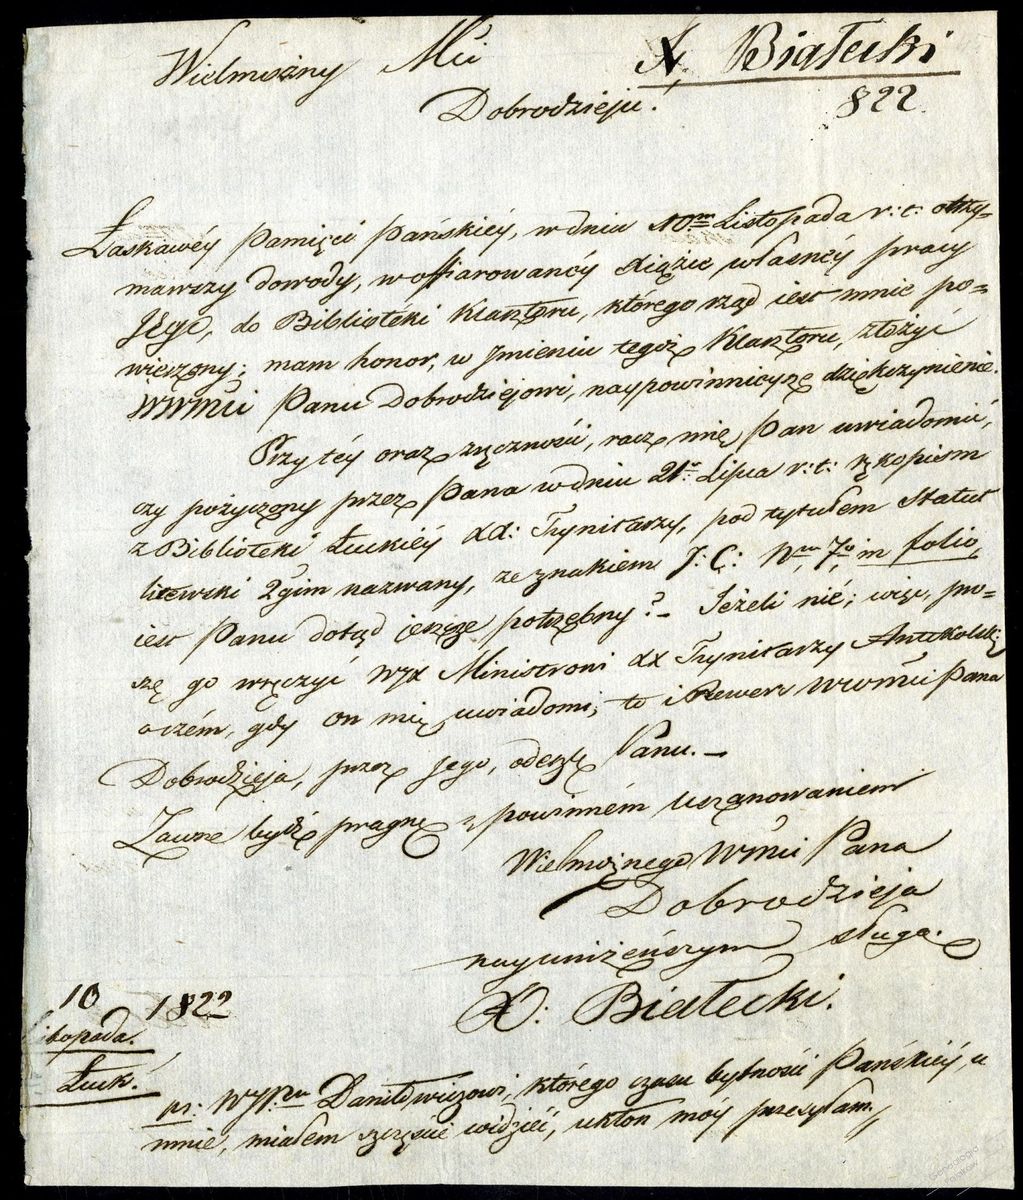 X. Białecki
822
Wielmożny Mci
Dobrodzieju.
Łaskawéy Pamięci Pańskiéy, w dniu 10m Listopada r: t: otrzy-
mawszy dowody, w offiarowanéy xiążce własnéy pracy
Jego, do Biblioteki Klasztoru, którego rząd iest mnie po-
wierzony; mam honor, w Jmieniu tegoż Klasztoru, złożyć
WWMci Panu Dobrodziejowi, naypowinnieysze dziękczynienie.
Przy téy oraz zręczności, racz mię Pan uwiadomić,
czy pożyczony przez Pana w dniu 21. Lipca r: t: rękopism
z Biblioteki Łuckiéy XX: Trynitarzy, pod tytułem Statut
litewski 2gim nazwany, ze znakiem J: C: Nm 7o in folio,
iest Panu dotąd jeszcze potrzebny? – Jeżeli nié; więc, pro-
szę go wręczyć WJX Ministrowi XX Trynitarzy Antokolski;
o czém, gdy on mię uwiadomi, to i Rewers WWMci Pana
Dobrodzieja, przez Jego, odeszlę Panu. –
Zawsze bydź pragnę z powinném uszanowaniem
Wielmożnego WMci Pana
Dobrodzieja
nayuniżeńszym sługą.
X: Białecki.
10 1822
Listopada.
Łuck.
ps: WJPu Daniłowiczowi, którego czasu bytności Pańskiéy, u
mnie, miałem szczęście widzieć, ukłon móy przesyłam.
Genealogia
Polaków